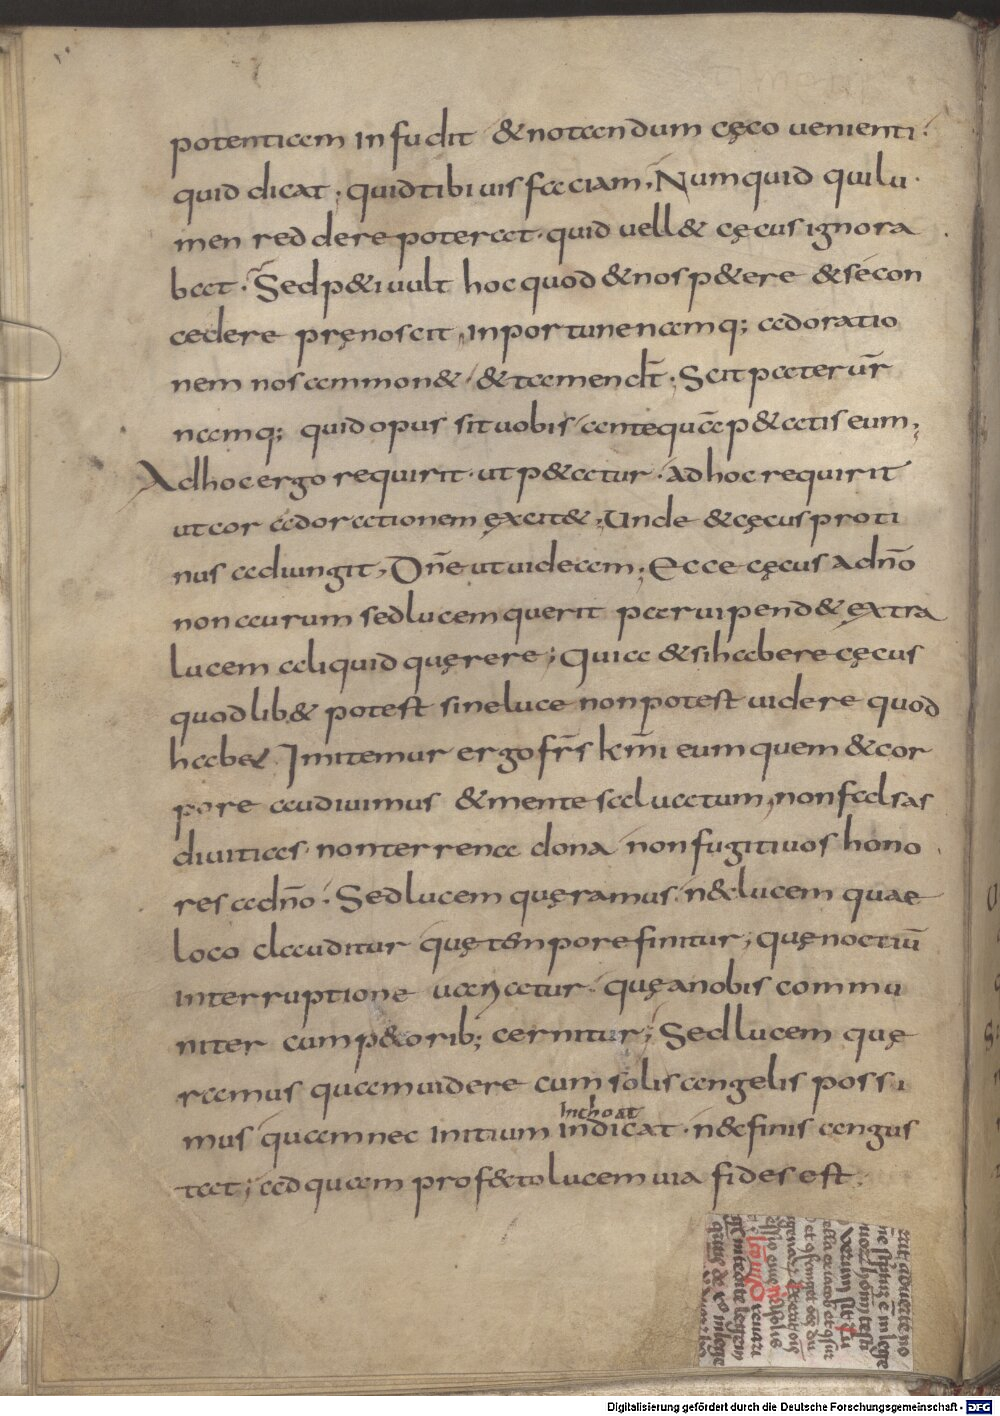 potentiam infudit &notandum cęco uenienti.
quid dicat; quidtibi uis faciam, Numquid qui lu
men reddere poterat. quid uell& cęcus ignora
bat. Sed p&i uult hoc quod &nos p&ere &sé con
cedere pręnoscit, inportune namq; adoratio
nem nos ammon&, &tamen dic̄t; Scit pater ur̄
namq; quid opus sit uobis antequā p&atis eum,
Ad hoc ergo requirit. ut p&atur. ad hoc requirit
ut cor ad orationem excit&, Unde &cęcus proti
nus adiungit, Dn̄e ut uideam; Ecce cęcus a dn̄o
non aurum sed lucem querit paruipend& extra
lucem aliquid quęrere; Quia &si habere cęcus
quodlib& potest sine luce non potest uidere quod
hab&. Imitemur ergo fr̄s km̄i eum quem &cor
pore audiuimus &mente saluatum, non falsas
diuitias. non terrena dona non fugitiuos hono
res a dn̄o. Sed lucem quęramus. n& lucem quae
loco clauditur quę tempore finitur, quę noctiū
interruptione uariatur. quę a nobis commu
niter cum p&orib; cernitur; Sed lucem quę
ramus quam uidere cum solis angelis possi
inchoat
mus quam nec initium indicat. n&c finis angus
tat; ad quam prof&to lucem uia fides est.
Digitalisierung gefördert durch die Deutsche Forschungsgemeinschaft - DFG